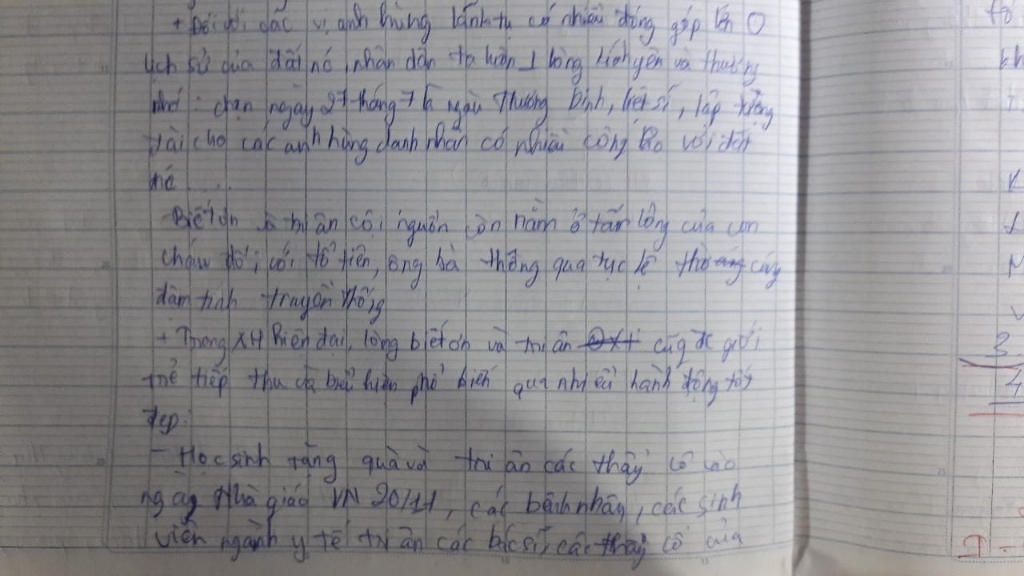 + Đối với các vị anh hùng lãnh tụ có nhiều đóng góp lớn
lịch sử của đất nc, nhân dân ta luôn 1 lòng kính yêu và thương
nhớ: chọn ngày 27 tháng 7 là ngày Thương binh, liệt sĩ, lập tượng
đài cho các anh hùng danh nhân có nhiều công lao với đất
nc ...
Biết ơn và tri ân cội nguồn còn nằm ở tấm lòng của con
cháu đối với tổ tiên, ông bà thông qua tục lệ thờ cúng
đậm tính truyền thống
+ Trong XH hiện đại, lòng biết ơn và tri ân cũng đc giới
trẻ tiếp thu và biểu hiện phổ biến qua nhiều hành động tốt
đẹp:
- Học sinh tặng quà và tri ân các thầy cô vào
ngày Nhà giáo VN 20/11, các bệnh nhân, các sinh
viên ngành y tế tri ân các bác sĩ, các thầy cô của
3
4
I -